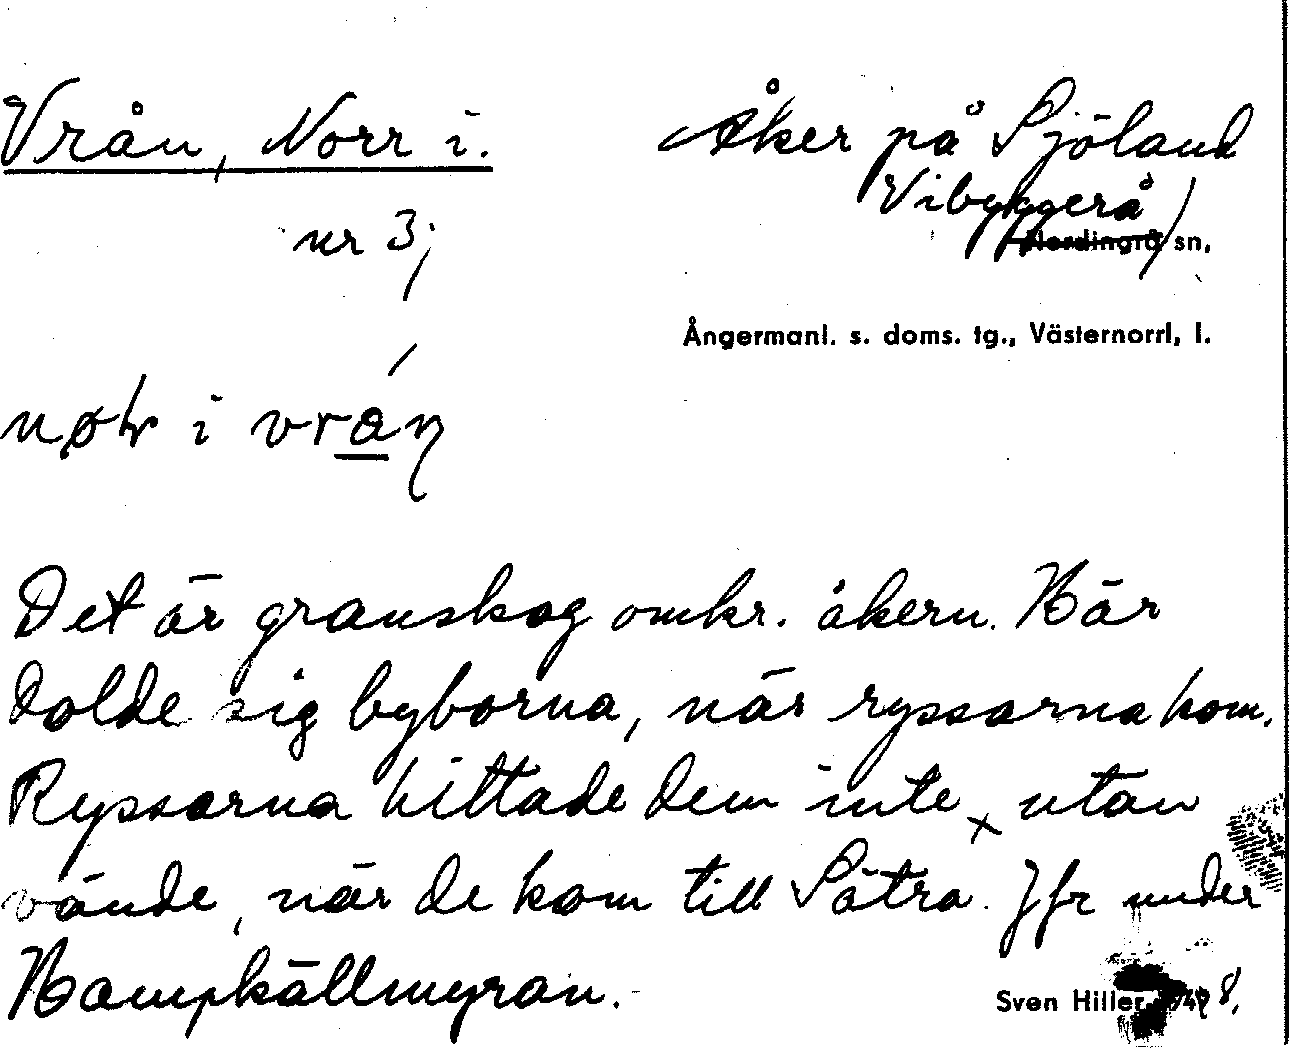 Vrån, Norr i.
Åker på Sjöland
nr 3;
Vibyggerå)
Nordingrå sn,
Ångermanl. s. doms. tg., Västernorrl, l.
i vrán
Det är granskog omkr. åkern. Här
dolde sig byborna, när ryssarna kom.
Ryssarna hittade dem inte, utan
vände, när de kom till Sätra. Jfr under
Hampkällmyran.
Sven Hiller 8,